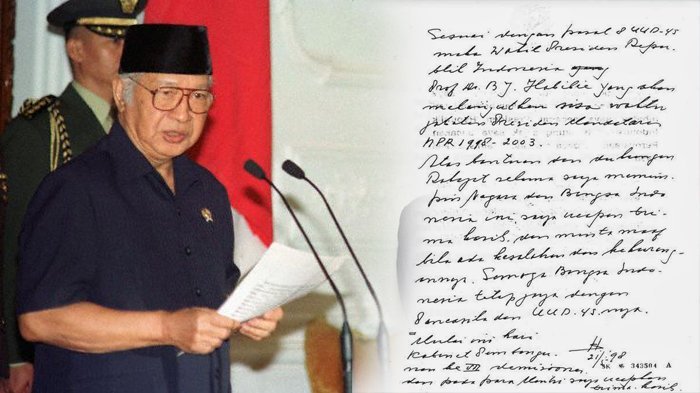 Sesuai dengan pasal 8 UUD-45
maka Wakil Presiden Repu-
blik Indonesia yang
Prof. Dr. B.J. Habibie yang akan
melanjutkan sisa waktu
jabatan Presiden Mandataris
MPR 1998-2003.
Atas bantuan dan dukungan
Rakyat selama saya memim-
pin Negara dan Bangsa Indo
nesia ini, saya ucapkan teri-
ma kasih, dan minta maaf
bila ada kesalahan dan kekurang-
annya. Semoga Bangsa Indo-
nesia tetap jaya dengan
Pancasila dan UUD-45 nya.
Mulai ini hari
Kabinet Pembangu-
nan ke VII demisioner
dan pada para Menteri saya ucapkan
terima kasih.
21/5-98
SK 343504 A